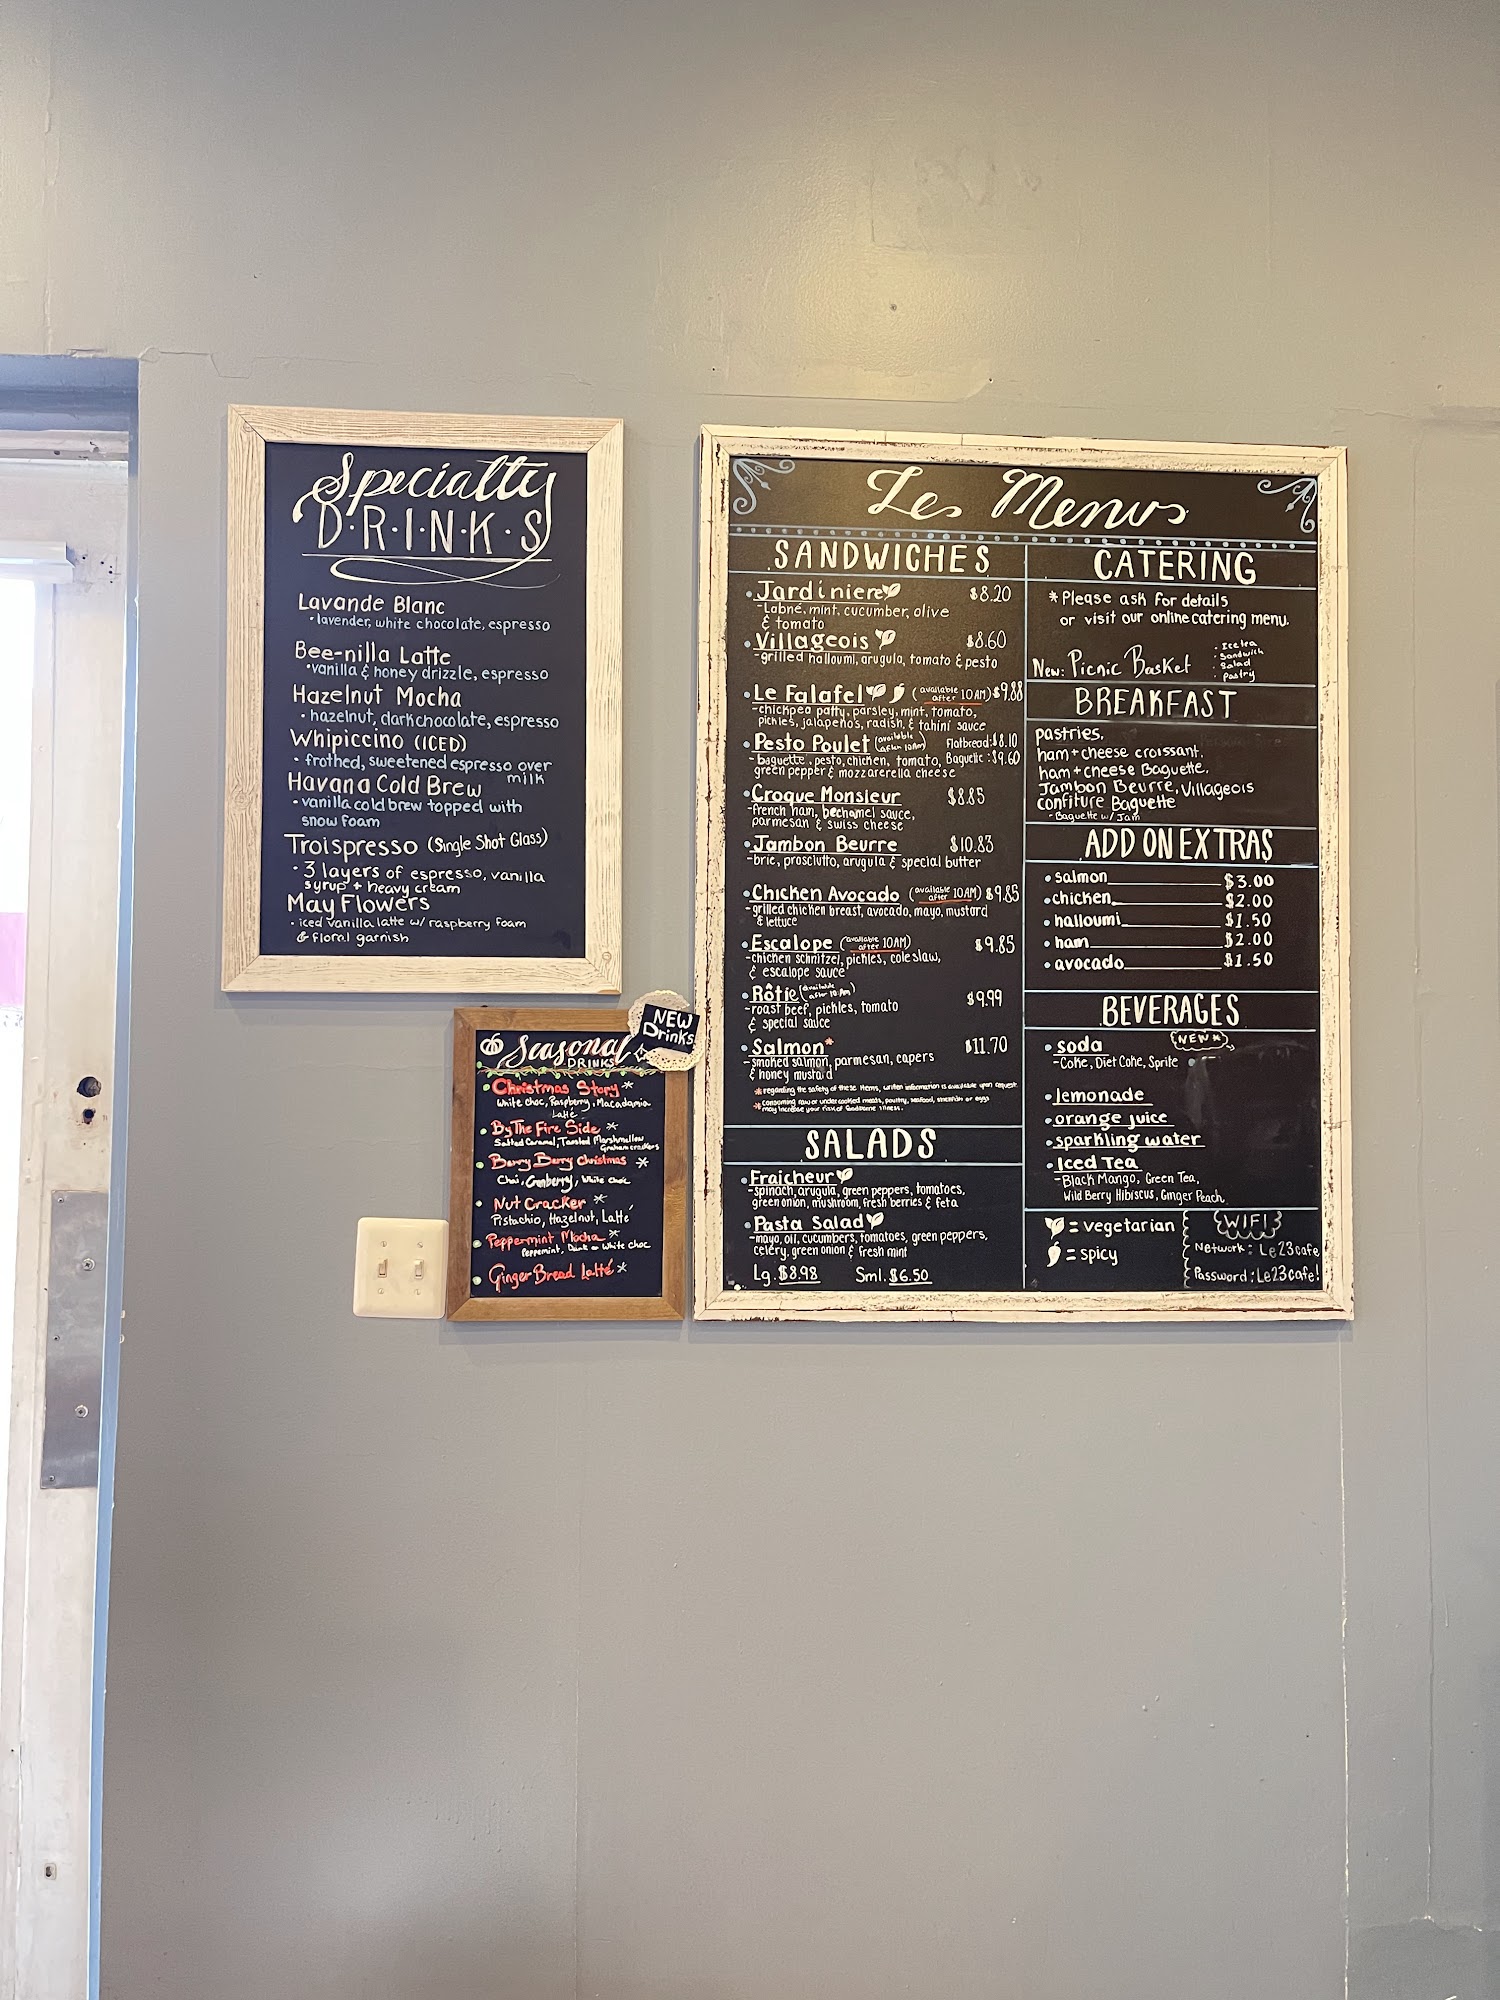 Specialty
D·R·I·N·K·S
Lavande Blanc
• lavender, white chocolate, espresso
Bee-nilla Latte
• vanilla & honey drizzle, espresso
Hazelnut Mocha
• hazelnut, dark chocolate, espresso
Whipiccino (ICED)
• frothed, sweetened espresso over
milk
Havana Cold Brew
• vanilla cold brew topped with
snow foam
Troispresso (Single Shot Glass)
• 3 layers of espresso, vanilla
syrup + heavy cream
May Flowers
• iced vanilla latte w/ raspberry foam
& floral garnish
NEW
Drinks
Seasonal
DRINKS
• Christmas Story *
White choc, Raspberry, Macadamia
Latté
• By The Fire Side *
Salted Caramel, Toasted Marshmallow
Graham crackers
• Berry Berry Christmas *
Chai, Cranberry, White choc
• Nut Cracker *
Pistachio, Hazelnut, Latté
• Peppermint Mocha *
Peppermint, Dark or White choc
• Ginger Bread Latté *
Les Menus
SANDWICHES
• Jardiniere $8.20
-Labné, mint, cucumber, olive
& tomato
• Villageois $8.60
-grilled halloumi, arugula, tomato & pesto
• Le Falafel (available after 10AM) $9.88
-chickpea patty, parsley, mint, tomato,
pickles, jalapeños, radish, & tahini sauce
• Pesto Poulet (available after 10Am) Flatbread: $8.10
-baguette, pesto, chicken, tomato, Baguette: $9.60
green pepper & mozzarerella cheese
• Croque Monsieur $8.85
-french ham, bechamel sauce,
parmesan & swiss cheese
• Jambon Beurre $10.83
-brie, prosciutto, arugula & special butter
• Chicken Avocado (available after 10AM) $9.85
-grilled chicken breast, avocado, mayo, mustard
& lettuce
• Escalope (available after 10AM) $9.85
-chichen schnitzel, pickles, cole slaw,
& escalope sauce
• Rôtie (available after 10Am) $9.99
-roast beef, pickles, tomato
& special sauce
• Salmon* $11.70
-smoked salmon, parmesan, capers
& honey mustard
*regarding the safety of these items, written information is available upon request.
*consuming raw or undercooked meats, poultry, seafood, shellfish or eggs
may increase your risk of foodborne illness.
SALADS
• Fraicheur
-spinach, arugula, green peppers, tomatoes,
green onion, mushroom, fresh berries & feta
• Pasta Salad
-mayo, oil, cucumbers, tomatoes, green peppers,
celery, green onion & fresh mint
Lg. $8.98 Sml. $6.50
CATERING
* Please ask for details
or visit our online catering menu.
New: Picnic Basket
• Ice tea
• Sandwich
• Salad
• pastry
BREAKFAST
pastries,
ham + cheese croissant,
ham + cheese Baguette,
Jambon Beurre, Villageois
confiture Baguette
- Baguette w/ Jam
ADD ON EXTRAS
• salmon $3.00
• chicken $2.00
• halloumi $1.50
• ham $2.00
• avocado $1.50
BEVERAGES
• soda
NEW*
-Coke, Diet Coke, Sprite
• lemonade
• orange juice
• sparkling water
• Iced Tea
-Black Mango, Green Tea,
Wild Berry Hibiscus, Ginger Peach,
= vegetarian
= spicy
WIFI
Network: Le23cafe
Password: Le23cafe!